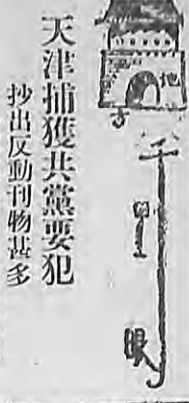 地方
千里眼
天津捕獲共黨要犯
抄出反動刊物甚多